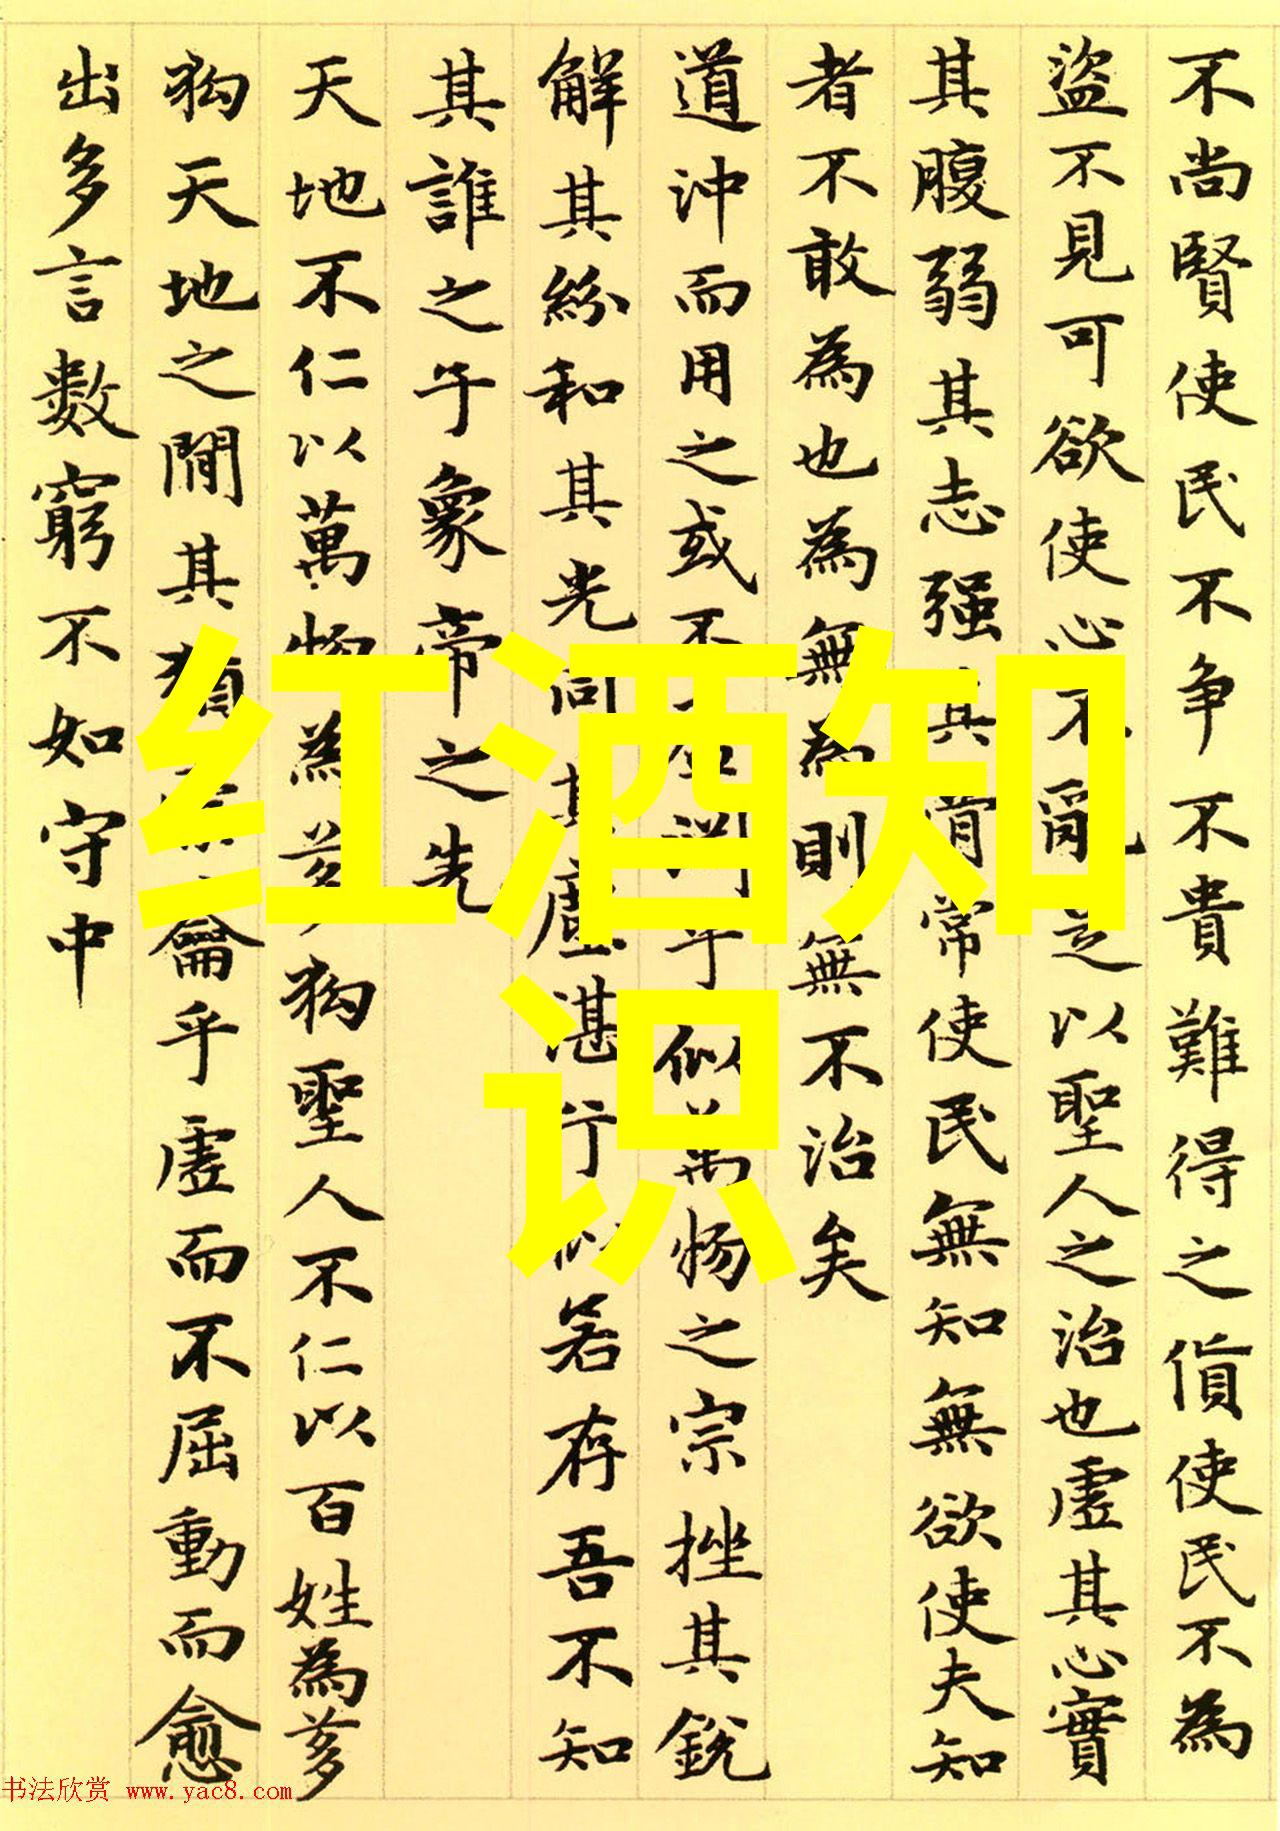 不尚賢使民不争不貴難得之貨使民不為
盜不見可欲使心不亂是以聖人之治也虛其心實
其腹弱其志强其骨常使民無知無欲使夫知
者不敢為也為無為則無不治矣
道沖而用之或不乎似萬物之宗挫其銳
解其紛和其光同其塵湛兮似若存吾不知
其誰之子象帝之先
天地不仁以萬物為芻狗聖人不仁以百姓為芻
狗天地之間其猶龠乎虛而不屈動而愈
出多言數窮不如守中
红酒知
识
书法欣赏 www.yac8.com